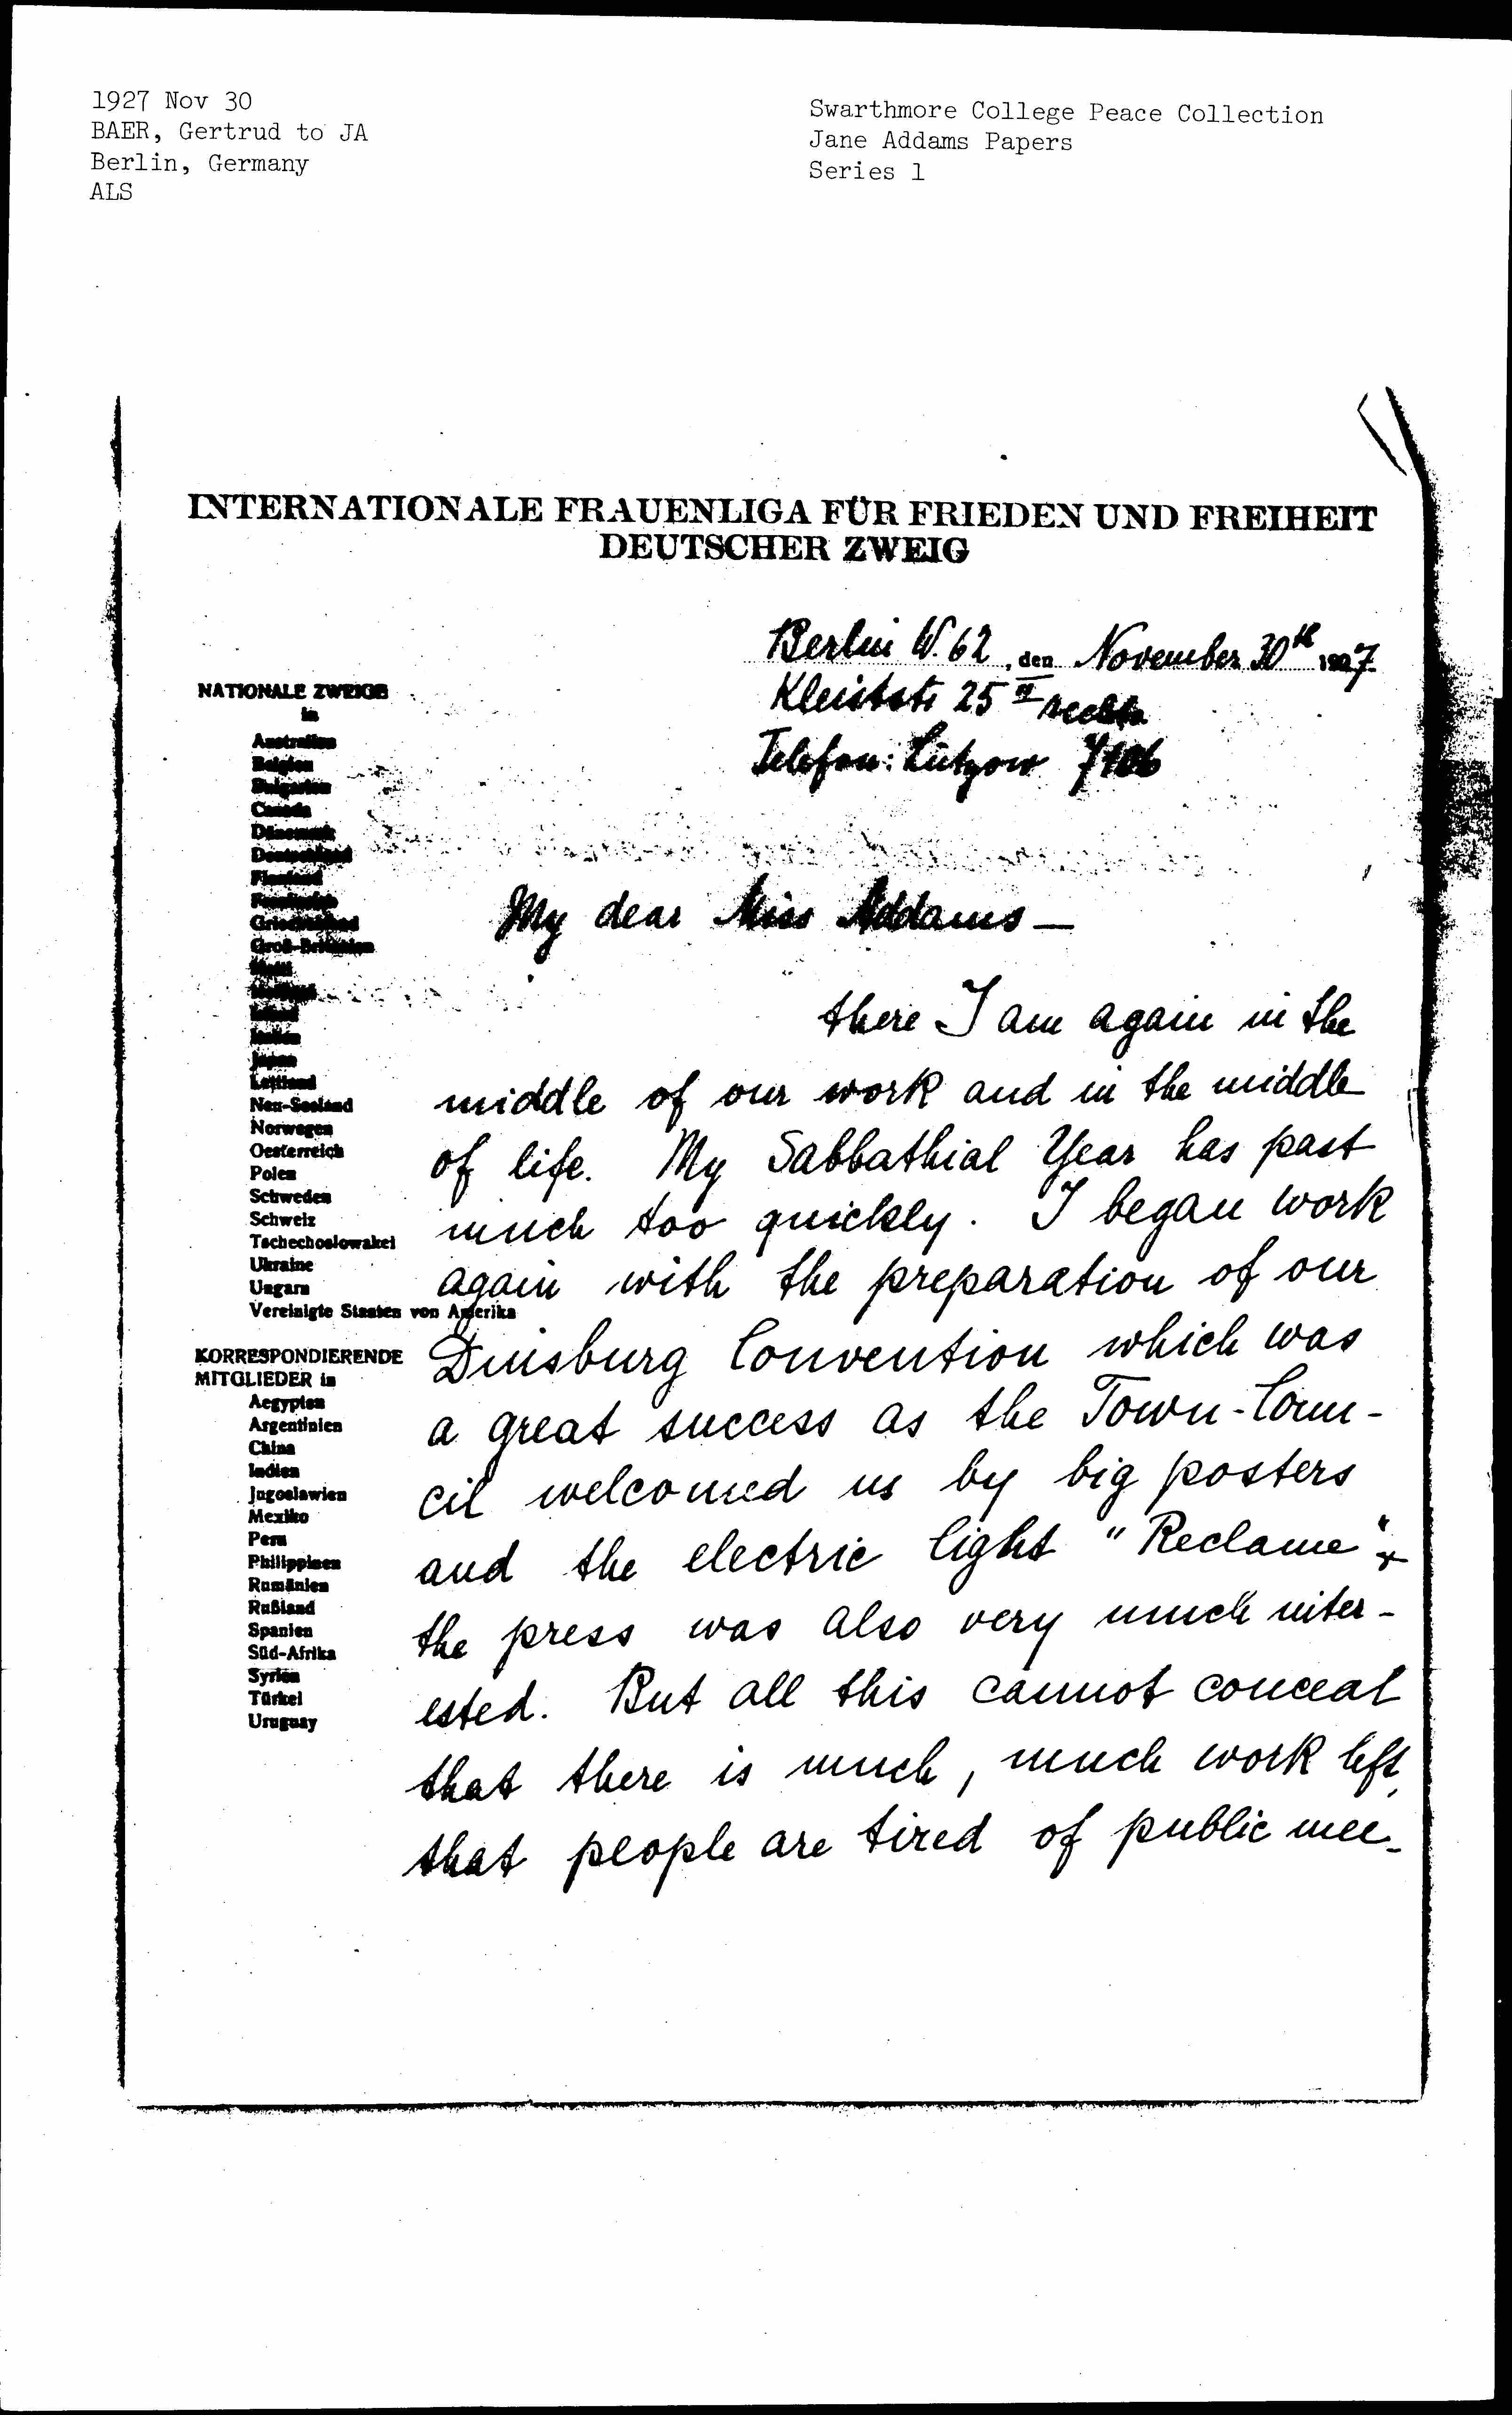 1927 Nov 30
BAER, Gertrud to JA
Berlin, Germany
ALS
Swarthmore College Peace Collection
Jane Addams Papers
Series 1
INTERNATIONALE FRAUENLIGA FÜR FRIEDEN UND FREIHEIT
DEUTSCHER ZWEIG
Berlin W. 62, den November 30th 1927
Kleiststr 25 II rechts
Telefon: Lützow
NATIONALE ZWEIGE
in
Australien
Belgien
Bulgarien
Canada
Dänemark
Deutschland
Finnland
Frankreich
Griechenland
Groß-Britannien
Haiti
Holland
Irland
Italien
Japan
Lettland
Neu-Seeland
Norwegen
Oesterreich
Polen
Schweden
Schweiz
Tschechoslowakei
Ukraine
Ungarn
Vereinigte Staaten von Amerika
KORRESPONDIERENDE
MITGLIEDER in
Aegypten
Argentinien
China
Indien
Jugoslawien
Mexiko
Peru
Philippinen
Rumänien
Rußland
Spanien
Süd-Afrika
Syrien
Türkei
Uruguay
My dear Miss Addams —
there I am again in the
middle of our work and in the middle
of life. My Sabbathial Year has past
much too quickly. I began work
again with the preparation of our
Duisburg Convention which was
a great success as the Town-Coun-
cil welcomed us by big posters
and the electric light "Reclame" +
the press was also very much inter-
ested. But all this cannot conceal
that there is much, much work left,
that people are tired of public mee-